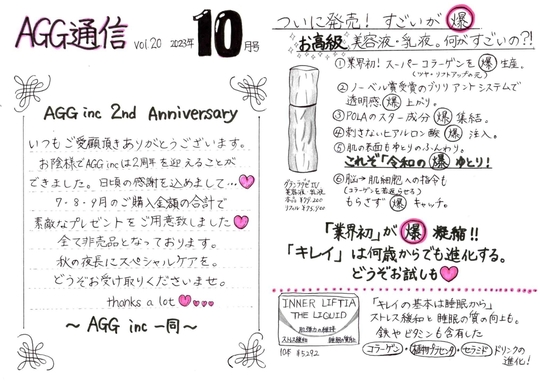 AGG通信 vol.20 2023年 10月号
AGG inc 2nd Anniversary
いつもご愛顧頂きありがとうございます。
お陰様でAGG incは2周年を迎えることが
できました。日頃の感謝を込めまして…
7・8・9月のご購入金額の合計で
素敵なプレゼントをご用意致しました
全て非売品となっております。
秋の夜長にスペシャルケアを。
どうぞお受け取りくださいませ。
thanks a lot
〜 AGG inc 一同 〜
ついに発売! すごいが 爆
お高級 美容液・乳液。何がすごいの?!
①業界初! スーパーコラーゲンを 爆 生産。
(ツヤ・リフトアップの元)
②ノーベル賞受賞のブリリアントシステムで
透明感 爆 上がり。
③POLAのスター成分 爆 集結。
④刺さないヒアルロン酸 爆 注入。
⑤肌の表面もゆとりのふんわり。
これぞ「令和の 爆 ゆとり!
⑥脳→肌細胞への指令も
(コラーゲンを若返らせろ)
もらさず 爆 キャッチ。
グランラグゼIV
美容液・乳液
本品
リフィル
「業界初」が 爆 凝縮!!
「キレイ」は何歳からでも進化する。
どうぞお試しも
INNER LIFTIA
THE LIQUID
肌弾力の維持
ストレス緩和 睡眠の質向上
10本 ¥5,292
「キレイの基本は睡眠から」
ストレス緩和と睡眠の質の向上も。
鉄やビタミンも含有した
コラーゲン・植物プラセンタ・セラミド ドリンクの
進化!